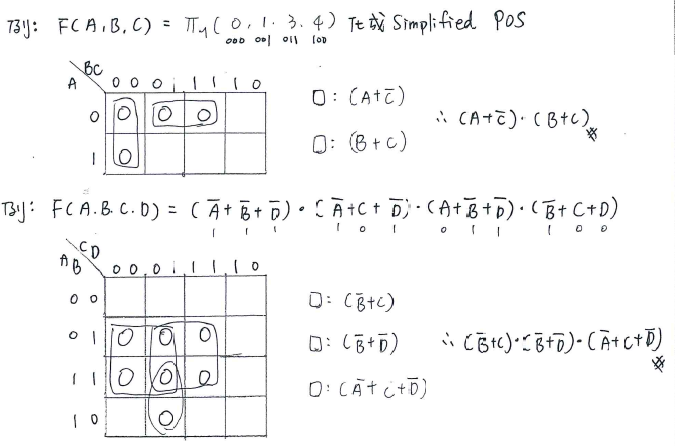 例: F(A,B,C) = π_M( 0, 1, 3, 4) 化成 Simplified POS
000 001 011 100
BC
A 00 01 11 10
0 0 0 0
1 0
□: (A+C̅)
□: (B+C)
∴ (A+C̅)·(B+C)
例: F(A.B.C.D) = (A̅+B̅+D̅)·(A̅+C+D̅)·(A+B̅+D̅)·(B̅+C+D)
1 1 1 1 0 1 0 1 1 1 0 0
CD
AB 00 01 11 10
00
01 0 0 0
11 0 0 0
10 0
□: (B̅+C)
□: (B̅+D̅)
□: (A̅+C+D̅)
∴ (B̅+C)·(B̅+D̅)·(A̅+C+D̅)